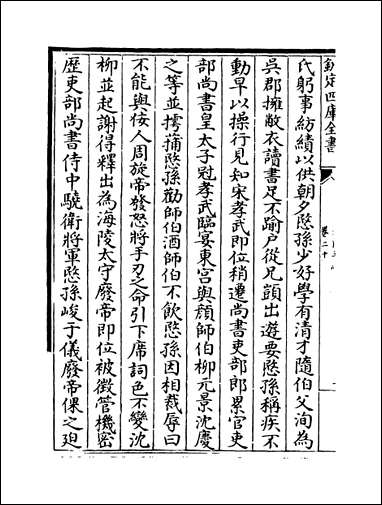 欽定四庫全書
卷二十
氏躬事紡績以供朝夕愍孫少好學有清才隨伯父洵為
吳郡擁敝衣讀書足不踰户從兄顗出遊要愍孫稱疾不
動早以操行見知宋孝武即位稍遷尚書吏部郎累官吏
部尚書皇太子冠孝武臨宴東宮與顔師伯柳元景沈慶
之等並摴蒱愍孫勸師伯酒師伯不飲愍孫因相裁辱曰
不能與佞人周旋帝發怒將手刃之命引下席詞色不變沈
柳並起謝得釋出為海陵太守廢帝即位被徵管機密
歴吏部尚書侍中驍衛將軍愍孫峻于儀廢帝倮之廹